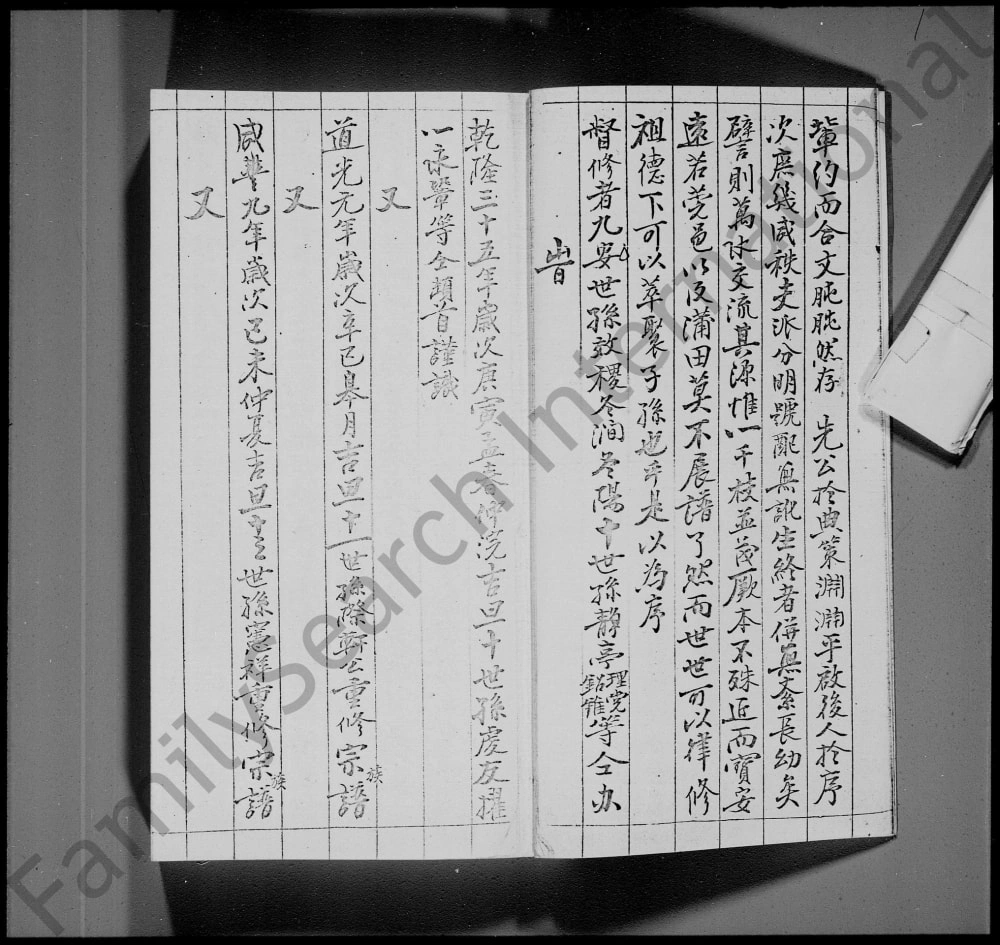 輩約而合文肫肫然存 先公於典策淵淵乎啟後人於序
次庶幾咸秩支派分明號配無訛生終者併無紊長幼矣
譬則萬脉交流其源惟一千枝並茂厥本不殊近而寶安
遠若莞邑以及蒲田莫不展譜了然而世世可以律修
祖德下可以萃聚子孫也乎是以為序
督修者九世孫效稷冬澗冬陽十世孫靜亭理完鋁錐等仝办
乾隆三十五年歲次庚寅孟春仲浣吉旦十世孫虔友擢
一永輋等仝頓首謹識
又
道光元年歲次辛巳皋月吉旦十一世孫際軒公重修宗族譜
又
咸豐九年歲次己未仲夏吉旦十三世孫憲祥重修宗族譜
又
FamilySearch International